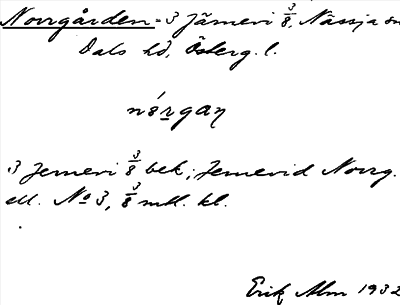 Norrgården = 3 Jämeri 3/8, Nässja sn
Dals hd, Österg. l.
nórgaɳ
3 Jemeri 3/8 bek; Jemerid Norrg.
ell. No 3, 3/8 mtl. kl.
Erik Alm 1932